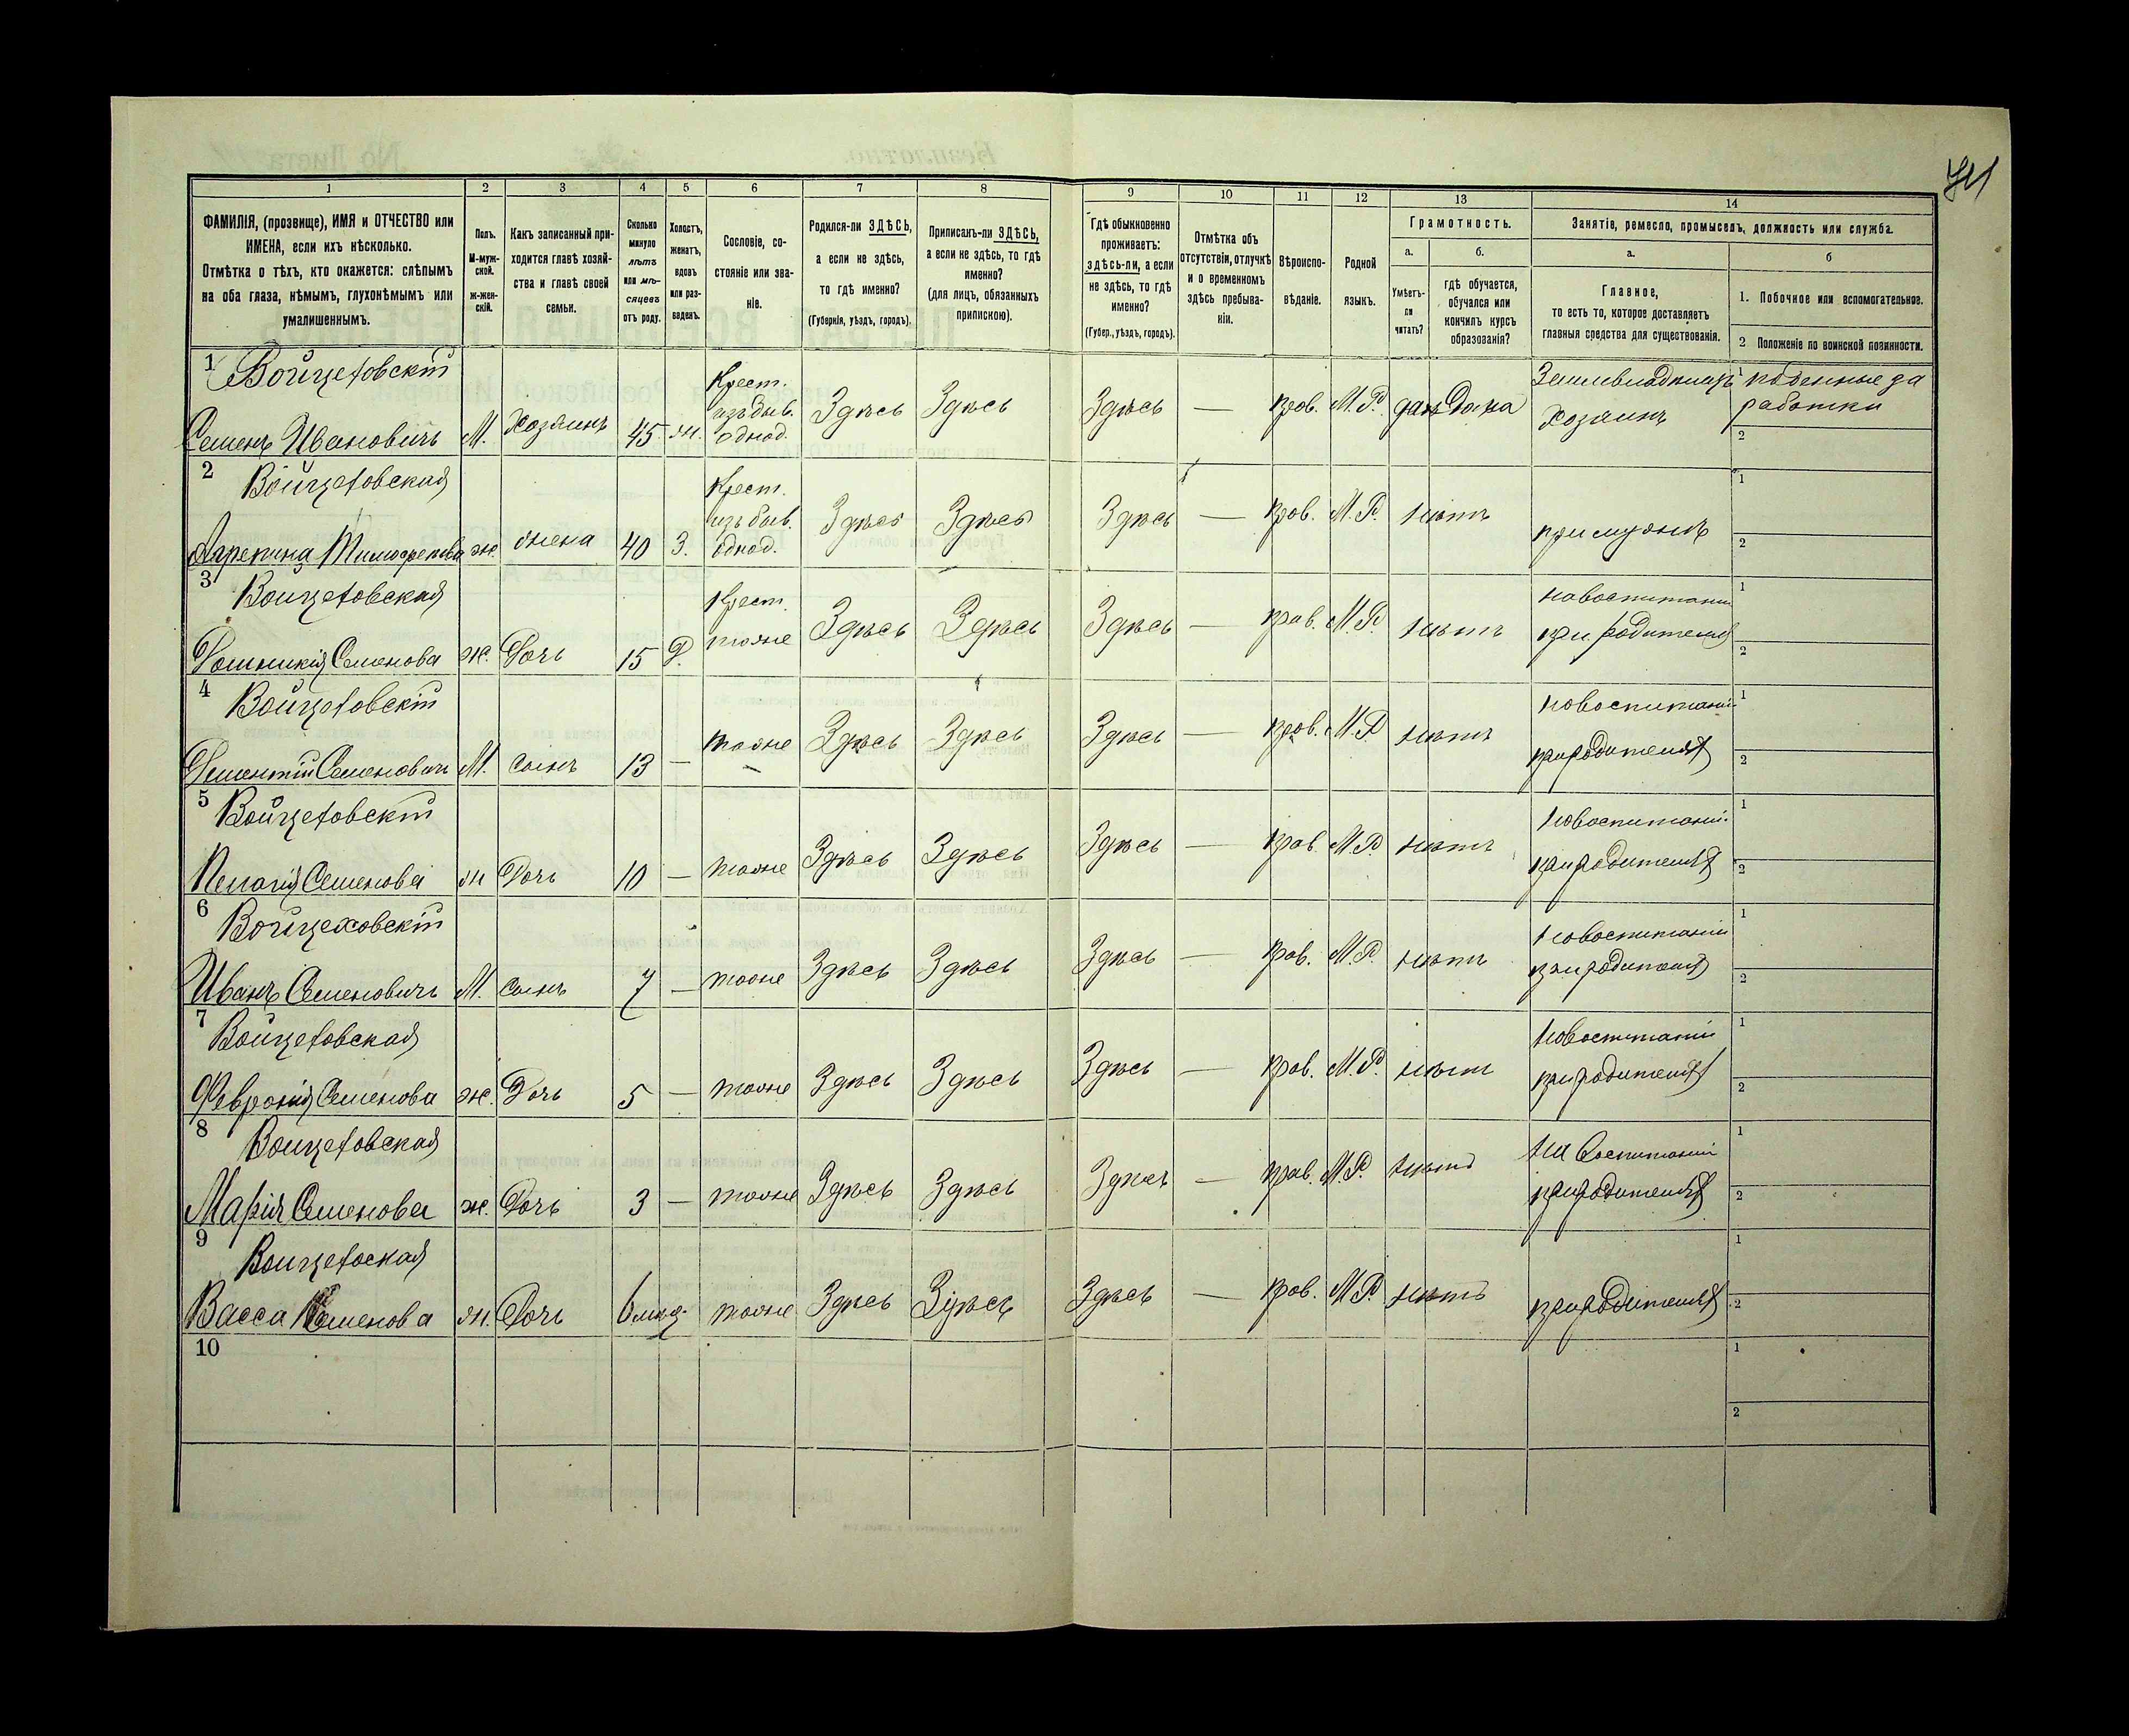 41
1 2 3 4 5 6 7 8 9 10 11 12 13 14
ФАМИЛІЯ, (прозвище), ИМЯ и ОТЧЕСТВО или
ИМЕНА, если ихъ нѣсколько.
Отмѣтка о тѣхъ, кто окажется: слѣпымъ
на оба глаза, нѣмымъ, глухонѣмымъ или
умалишеннымъ.
Полъ.
М-муж-
ской.
ж-жен-
скій.
Какъ записанный при-
ходится главѣ хозяй-
ства и главѣ своей
семьи.
Сколько
минуло
лѣтъ
или мѣ-
сяцевъ
отъ роду.
Холостъ,
женатъ,
вдовъ
или раз-
веденъ.
Сословіе, со-
стояніе или зва-
ніе.
Родился-ли ЗДѢСЬ,
а если не здѣсь,
то гдѣ именно?
(Губернія, уѣздъ, городъ).
Приписанъ-ли ЗДѢСЬ,
а если не здѣсь, то гдѣ
именно?
(для лицъ, обязанныхъ
припискою).
Гдѣ обыкновенно
проживаетъ:
здѣсь-ли, а если
не здѣсь, то гдѣ
именно?
(Губер., уѣздъ, городъ).
Отмѣтка объ
отсутствіи, отлучкѣ
и о временномъ
здѣсь пребыва-
ніи.
Вѣроиспо-
вѣданіе.
Родной
языкъ.
Грамотность.
а.
Умѣетъ-
ли
читать?
б.
гдѣ обучается,
обучался или
кончилъ курсъ
образованія?
Занятіе, ремесло, промыселъ, должность или служба.
а.
Главное,
то есть то, которое доставляетъ
главныя средства для существованія.
б
1. Побочное или вспомогательное.
2 Положеніе по воинской повинности.
1 Войцеховскій
Семенъ Ивановичъ М. Хозяинъ 45 ж. Крест.
изъ быв.
однод. Здѣсь Здѣсь Здѣсь — прав. М.Р. да Дома
Хозяинъ
1 поденные за
работки
2
2 Войцеховская
Агрепина Тимофеева ж. жена 40 З. Крест.
изъ быв.
однод. Здѣсь Здѣсь Здѣсь — прав. М.Р. нѣтъ при мужѣ
1
2
3 Войцеховская
Семенова ж. Дочь 15 Д. Крест.
тоже Здѣсь Здѣсь Здѣсь — прав. М.Р. нѣтъ на воспитаніи
при родителях
1
2
4 Войцеховскій
Дементій Семеновичъ М. сынъ 13 — тоже Здѣсь Здѣсь Здѣсь — прав. М.Р. нѣтъ на воспитаніи
при родителях
1
2
5 Войцеховскій
Пелагія Семенова ж Дочь 10 — тоже Здѣсь Здѣсь Здѣсь — прав. М.Р. нѣтъ на воспитаніи
при родителях
1
2
6 Войцеховскій
Иванъ Семеновичъ М. сынъ 7 — тоже Здѣсь Здѣсь Здѣсь — прав. М.Р. нѣтъ на воспитаніи
при родителях
1
2
7 Войцеховская
Февронія Семенова ж. Дочь 5 — тоже Здѣсь Здѣсь Здѣсь — прав. М.Р. нѣтъ на воспитаніи
при родителях
1
2
8 Войцеховская
Марія Семенова ж. Дочь 3 — тоже Здѣсь Здѣсь Здѣсь — прав. М.Р. нѣтъ на воспитаніи
при родителях
1
2
9 Войцехоская
Васса Семенова ж. Дочь 6 мѣц. тоже Здѣсь Здѣсь Здѣсь — прав. М.Р. нѣтъ при родителях
1
2
10
1
2